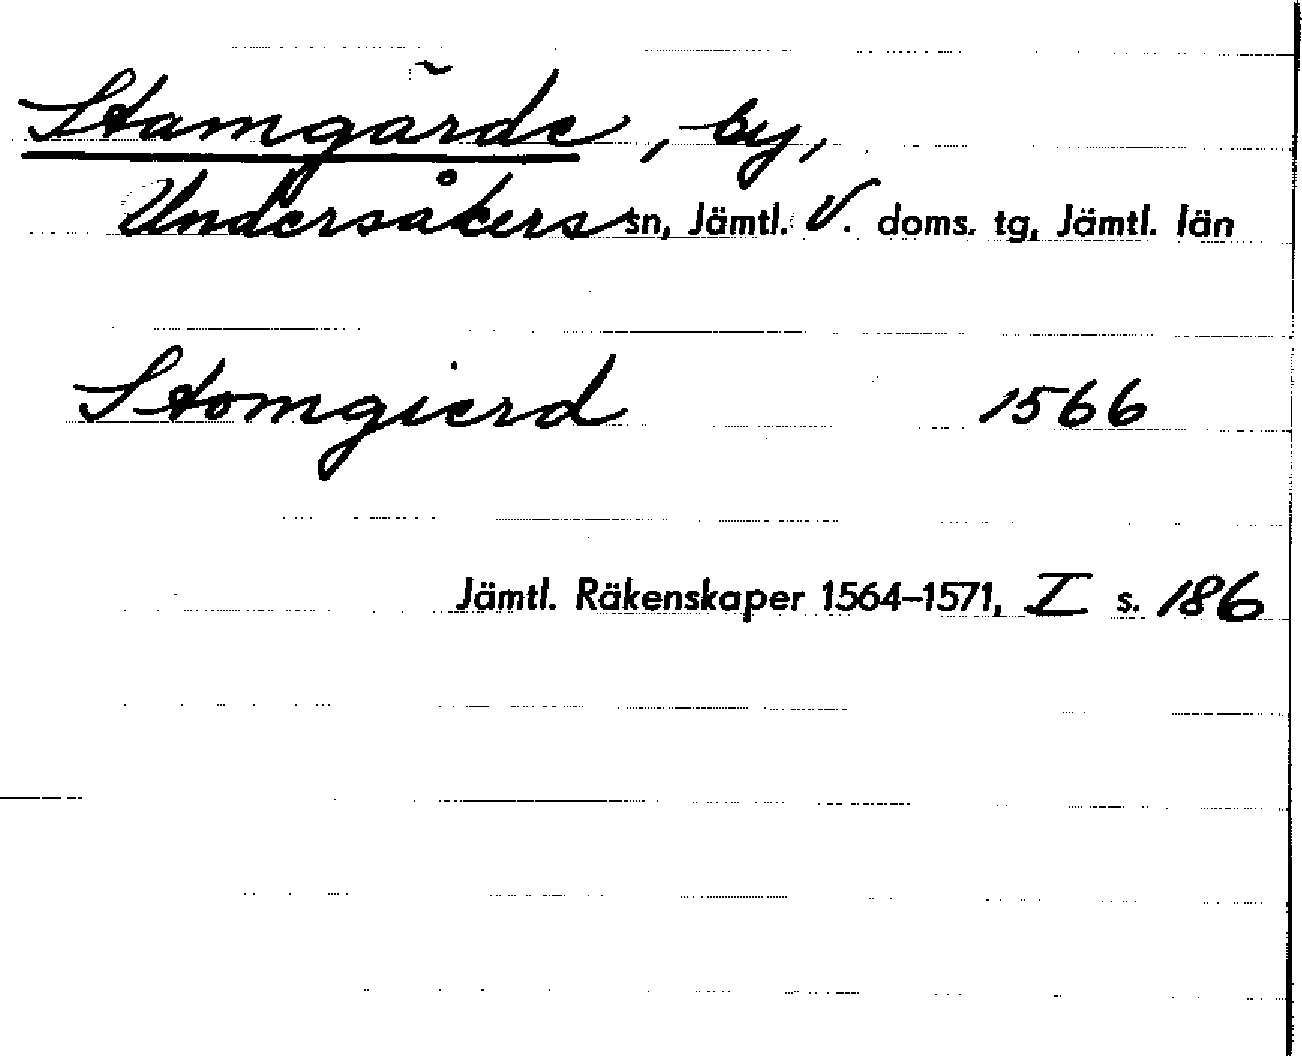 Stamgärde, by,
Undersåkers sn, Jämtl. V. doms. tg, Jämtl. län
Stomgierd 1566
Jämtl. Räkenskaper 1564-1571, I s. 186